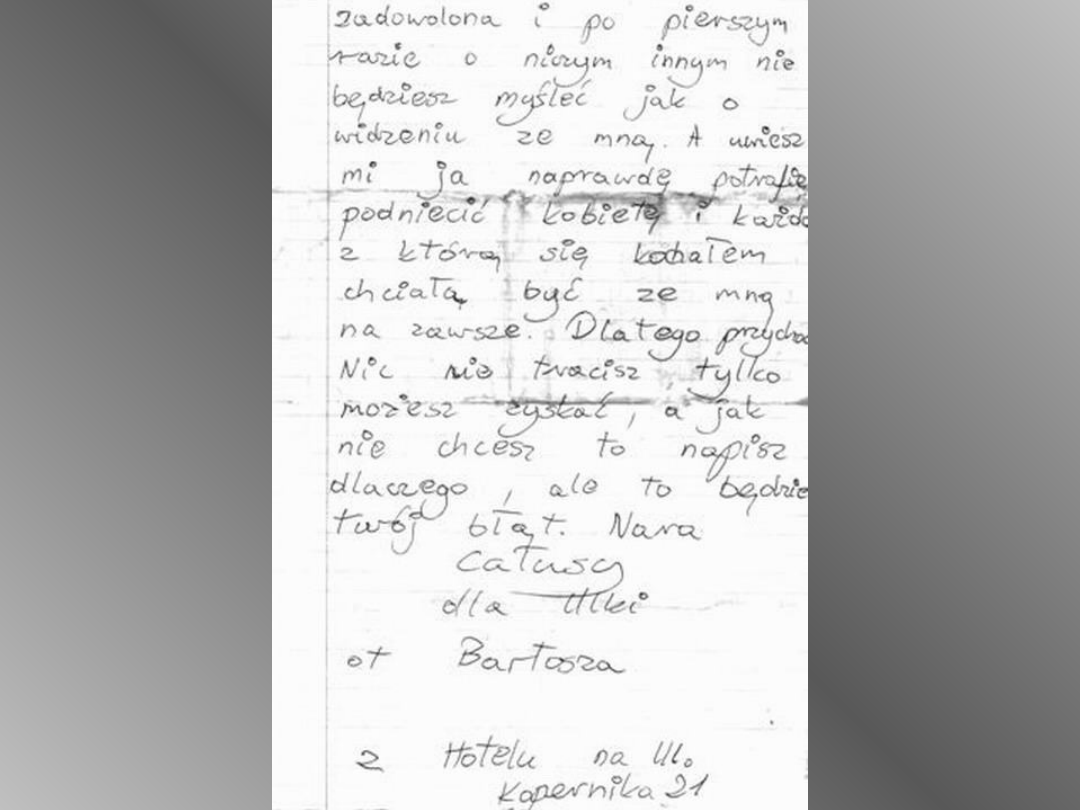 zadowolona i po pierszym
razie o niczym innym nie
będziesz myśleć jak o
widzeniu ze mną. A uwiesz
mi ja naprawdę potrafię
podniecić kobietę i każdą
z którą się kochałem
chciałą być ze mną
na zawsze. Dlatego przychodź
Nic nie tracisz, tylko
możesz zyskać, a jak
nie chcesz to napisz
dlaczego, ale to będzie
twój błąt. Nara
Całusy
dla Ulki
ot Bartosza
z Hotelu na Ul.
Kopernika 21